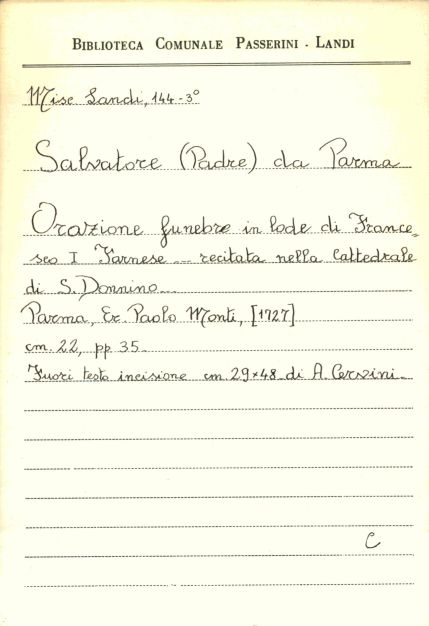 BIBLIOTECA COMUNALE PASSERINI - LANDI
Misc Landi, 144-3°
Salvatore (Padre) da Parma
Orazione funebre in lode di France=
sco I Farnese ... recitata nella Cattedrale
di S. Donnino...
Parma, Er. Paolo Monti, [1727]
cm. 22, pp 35.
Fuori testo incisione cm. 29×48 di A. Cerzini.
C